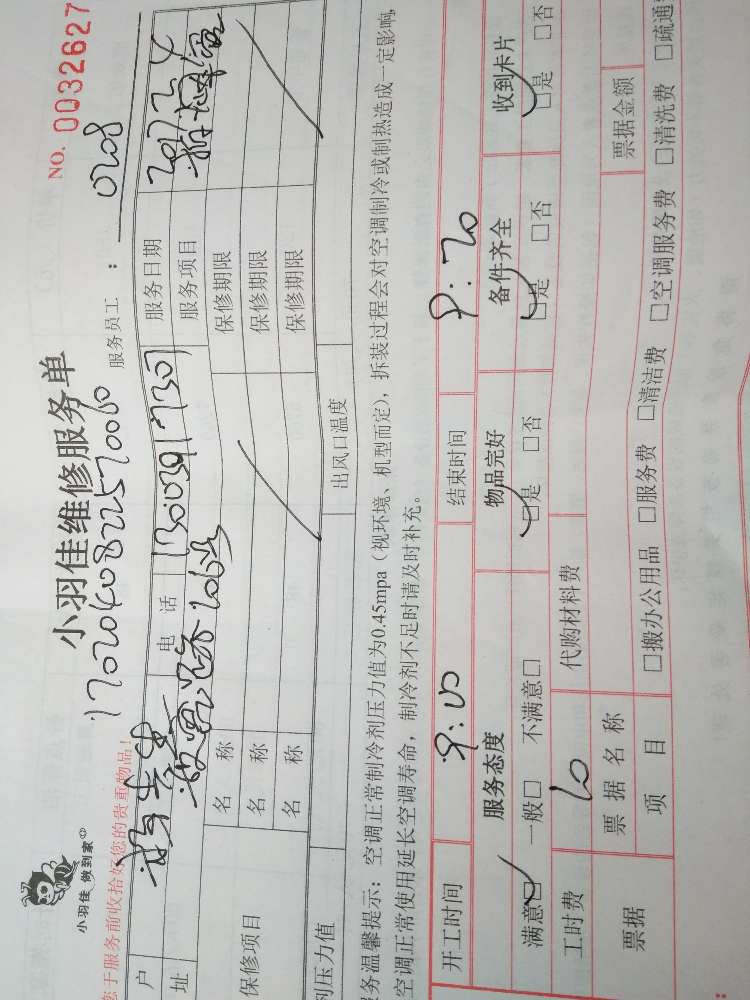 NO. 0032627
小羽佳 做到家
小羽佳维修服务单
1702040822570060
服务员工： 0208
您于服务前收拾好您的贵重物品！
户 电 话 13003917301 服务日期
址 服务项目
保修项目
名 称 保修期限
名 称 保修期限
名 称 保修期限
剂压力值 出风口温度
服务温馨提示： 空调正常制冷剂压力值为0.45mpa（视环境、机型而定），拆装过程会对空调制冷或制热造成一定影响，
空调正常使用延长空调寿命，制冷剂不足时请及时补充。
开工时间 结束时间 9:20
服务态度 物品完好 备件齐全 收到卡片
满意□ 一般□ 不满意□ □是 □否 □是 □否 □是 □否
工时费 代购材料费
票据 票据名称 票据金额
项 目 □搬办公用品 □服务费 □清洁费 □空调服务费 □清洗费 □疏通